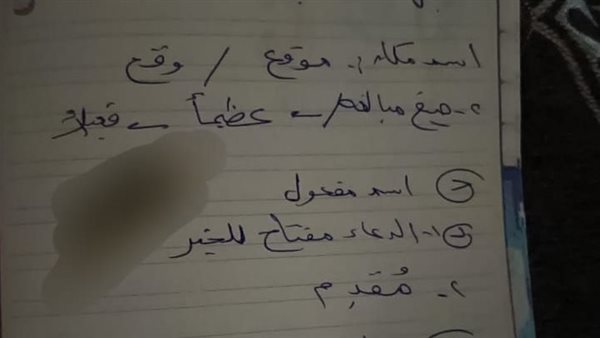 اسم مكان: موقع / وقع
٢- صيغ مبالغة ← عظيماً ← فعيلاً
اسم مفعول
١- الدعاء مفتاح للخير
٢- مُقدِم